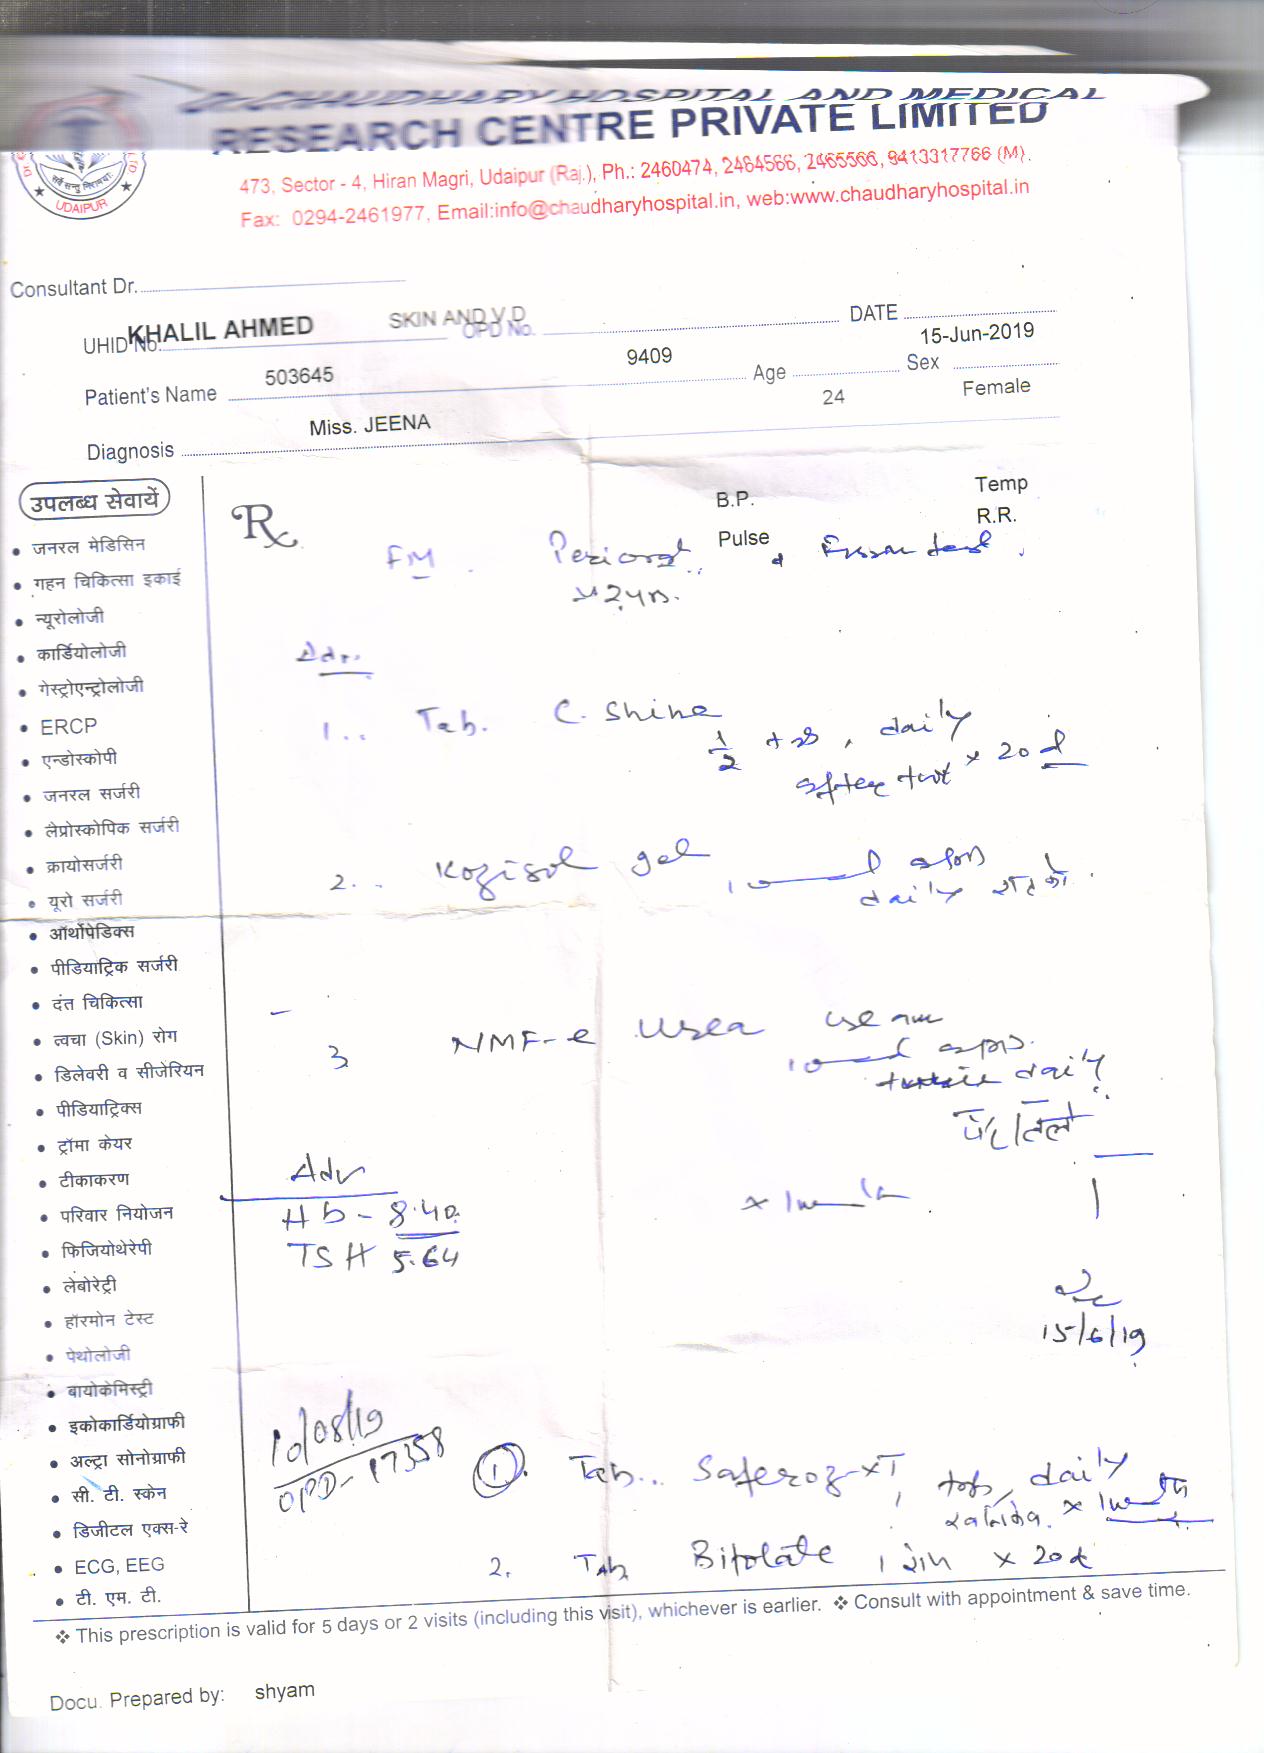 Dr. CHAUDHARY HOSPITAL AND MEDICAL
RESEARCH CENTRE PRIVATE LIMITED
473, Sector - 4, Hiran Magri, Udaipur (Raj.), Ph.: 2460474, 2464566, 2465566, 9413317766 (M).
Fax: 0294-2461977, Email:info@chaudharyhospital.in, web:www.chaudharyhospital.in
सर्वे सन्तु निरामयाः
UDAIPUR
Consultant Dr.
KHALIL AHMED SKIN AND V.D
UHID No. OPD No. DATE
503645 9409 15-Jun-2019
Patient's Name Age Sex
Miss. JEENA 24 Female
Diagnosis
उपलब्ध सेवायें
• जनरल मेडिसिन
• गहन चिकित्सा इकाई
• न्यूरोलोजी
• कार्डियोलोजी
• गेस्ट्रोएन्ट्रोलोजी
• ERCP
• एन्डोस्कोपी
• जनरल सर्जरी
• लेप्रोस्कोपिक सर्जरी
• क्रायोसर्जरी
• यूरो सर्जरी
• ऑर्थोपेडिक्स
• पीडियाट्रिक सर्जरी
• दंत चिकित्सा
• त्वचा (Skin) रोग
• डिलेवरी व सीजेरियन
• पीडियाट्रिक्स
• ट्रॉमा केयर
• टीकाकरण
• परिवार नियोजन
• फिजियोथेरेपी
• लेबोरेट्री
• हॉरमोन टेस्ट
• पेथोलोजी
• बायोकेमिस्ट्री
• इकोकार्डियोग्राफी
• अल्ट्रा सोनोग्राफी
• सी. टी. स्केन
• डिजीटल एक्स-रे
• ECG, EEG
• टी. एम. टी.
Rx
B.P. Temp
Pulse R.R.
FM
Adv.
1.. Tab. C. Shine
1/2 tab, daily
after × 20 d
2.. Kozisol gel
daily रात को
3 NMF-e Urea
daily
Adv
Hb - 8.40
TSH 5.64
15/6/19
10/08/19
OPD-17358
①. Tab.. Saferoz-XT, tab, daily
2. Tab Bifolate 1 × 20 d
❖ This prescription is valid for 5 days or 2 visits (including this visit), whichever is earlier. ❖ Consult with appointment & save time.
Docu. Prepared by: shyam